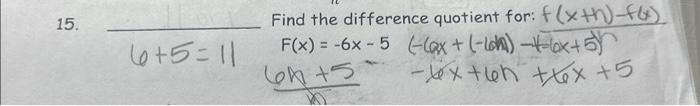 15. Find the difference quotient for: f(x+h)-f(x)
6+5=11 F(x) = -6x - 5 (-6x + (-6h) -(-6x+5) h
6h+5 -6x+6h +6x +5
h